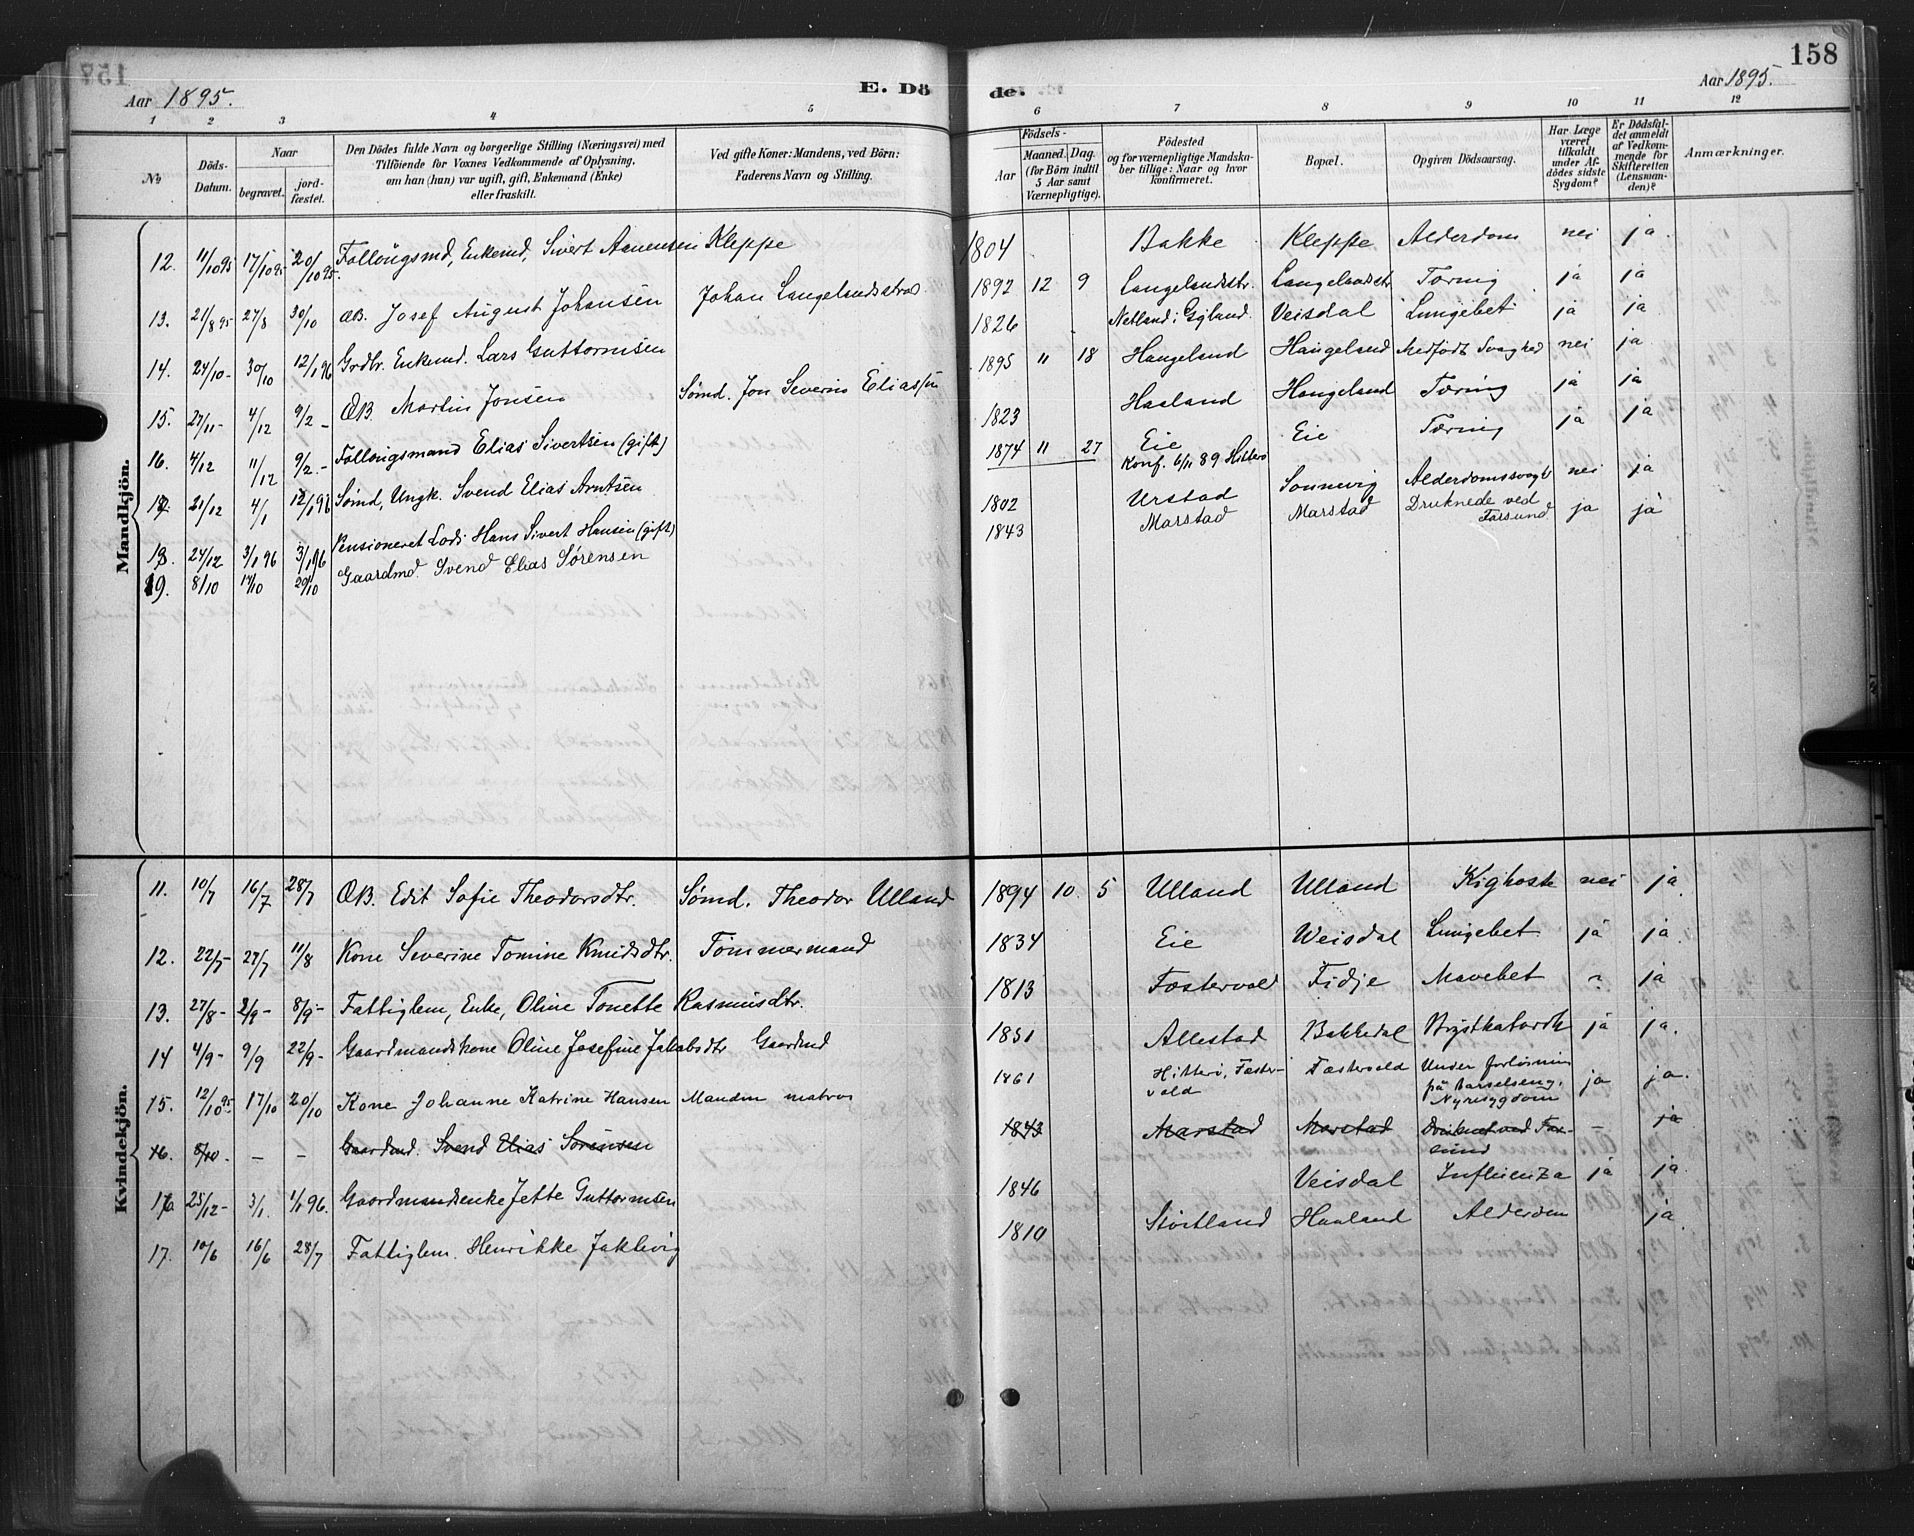 157
Aar 1895.
E. Dö
de.
158
Aar 1895.
1 2 3 4 5 6 7 8 9 10 11 12
No
Döds-Datum.
Naar
begravet.
jord-fæstet.
Den Dödes fulde Navn og borgerlige Stilling (Næringsvei) med
Tilföiende for Voxnes Vedkommende af Oplysning,
om han (hun) var ugift, gift, Enkemand (Enke)
eller fraskilt.
Ved gifte Koner: Mandens, ved Börn:
Faderens Navn og Stilling.
Födsels-
Aar
Maaned. Dag.
(for Börn indtil
5 Aar samt
Værnepligtige).
Födested
og for værnepligtige Mandska-
ber tillige: Naar og hvor
konfirmeret.
Bopæl.
Opgiven Dödsaarsag.
Har Læge
været
tilkaldt
under Af-
dödes sidste
Sygdom?
Er Dödsfal-
det anmeldt
af Vedkom-
mende for
Skifteretten
(Lensman-
den)?
Anmærkninger.
Mandkjön.
12. 11/10 95 17/10 95 20/10 95. Follougsmd, Enkemd, Sivert Aanensen Kleppe 1804 Bakke Kleppe Alderdom nei ja.
13. 21/8 95 27/8 30/10 ÆB. Josef August Johansen Johan Langelandsstrøs 1892 12 9 Langelandsstr. Langelandsstr Tæring ja ja
14. 24/10- 30/10 12/1 96 Grdbr. Enkemd. Lars Guttormsen 1826 Netland i Gyland. Veisdal Lungebet. ja ja
15. 27/11- 4/12 9/2- ÆB. Martin Jonsen Sømd. Jon Severin Eliassen 1895 11 18 Haugeland Haugeland Medfødt Svaghed nei ja
16. 4/12 11/12 9/2.- Follougsmand Elias Sivertsen (gift) 1823 Haaland Haugeland Tæring ja ja
17. 21/12 4/1 12/1 96 Sømd, Ungk. Svend Elias Arntsen 1874 11 27 Eie Konf. 6/11 89 Hitterø Eie Tæring ja ja
18. 24/12 3/1 96 3/1 96 Pensioneret Lods Hans Sivert Hansen (gift) 1802 Urstad Sonnevig Alderdomssvagh nei ja
19. 8/10 14/10 20/10 Gaardmd. Svend Elias Sørensen 1843 Marstad Marstad Druknede ved Farsund ja ja
Kvindekjön.
11. 10/7 16/7 28/7 ÆB. Edit Sofie Theodorsdtr. Sømd. Theodor Ulland 1894 10. 5 Ulland Ulland Kighoste nei ja.
12. 22/7- 27/7 11/8 Kone Severine Tomine Knudsdtr. Tømmermand 1834 Eie Weisdal Lungebet. ja ja.
13. 27/8- 2/9- 8/9- Fattiglem, Enke, Oline Tonette Rasmusdtr. 1813 Fæstervold Fidje Mavebet ? ja
14 4/9- 9/9 22/9- Gaardmandskone Oline Josefine Jakobsdtr Gaardmd 1851 Allestad Bakkedal Brystkatarrh ja ja.
15. 12/10 95 17/10 20/10 Kone Johanne Katrine Hansen Manden matros 1861 Hitterø, Fæster-vold Fæstervold Under forløsning på barselseng, Nyresygdom ja ja.
16. 8/10. - - Gaardmd. Svend Elias Sørensen 1843 Marstad Marstad Druknet ved Far-sund - ja
16. 25/12- 3/1. 1/1 96. Gaardmandsenke Jette Guttormsen 1846 Veisdal Influenza ja ja.
17. 10/6 16/6 28/7 Fattiglem. Henrikke Jaklevig 1810 Støitland Haaland Alderdom ja.